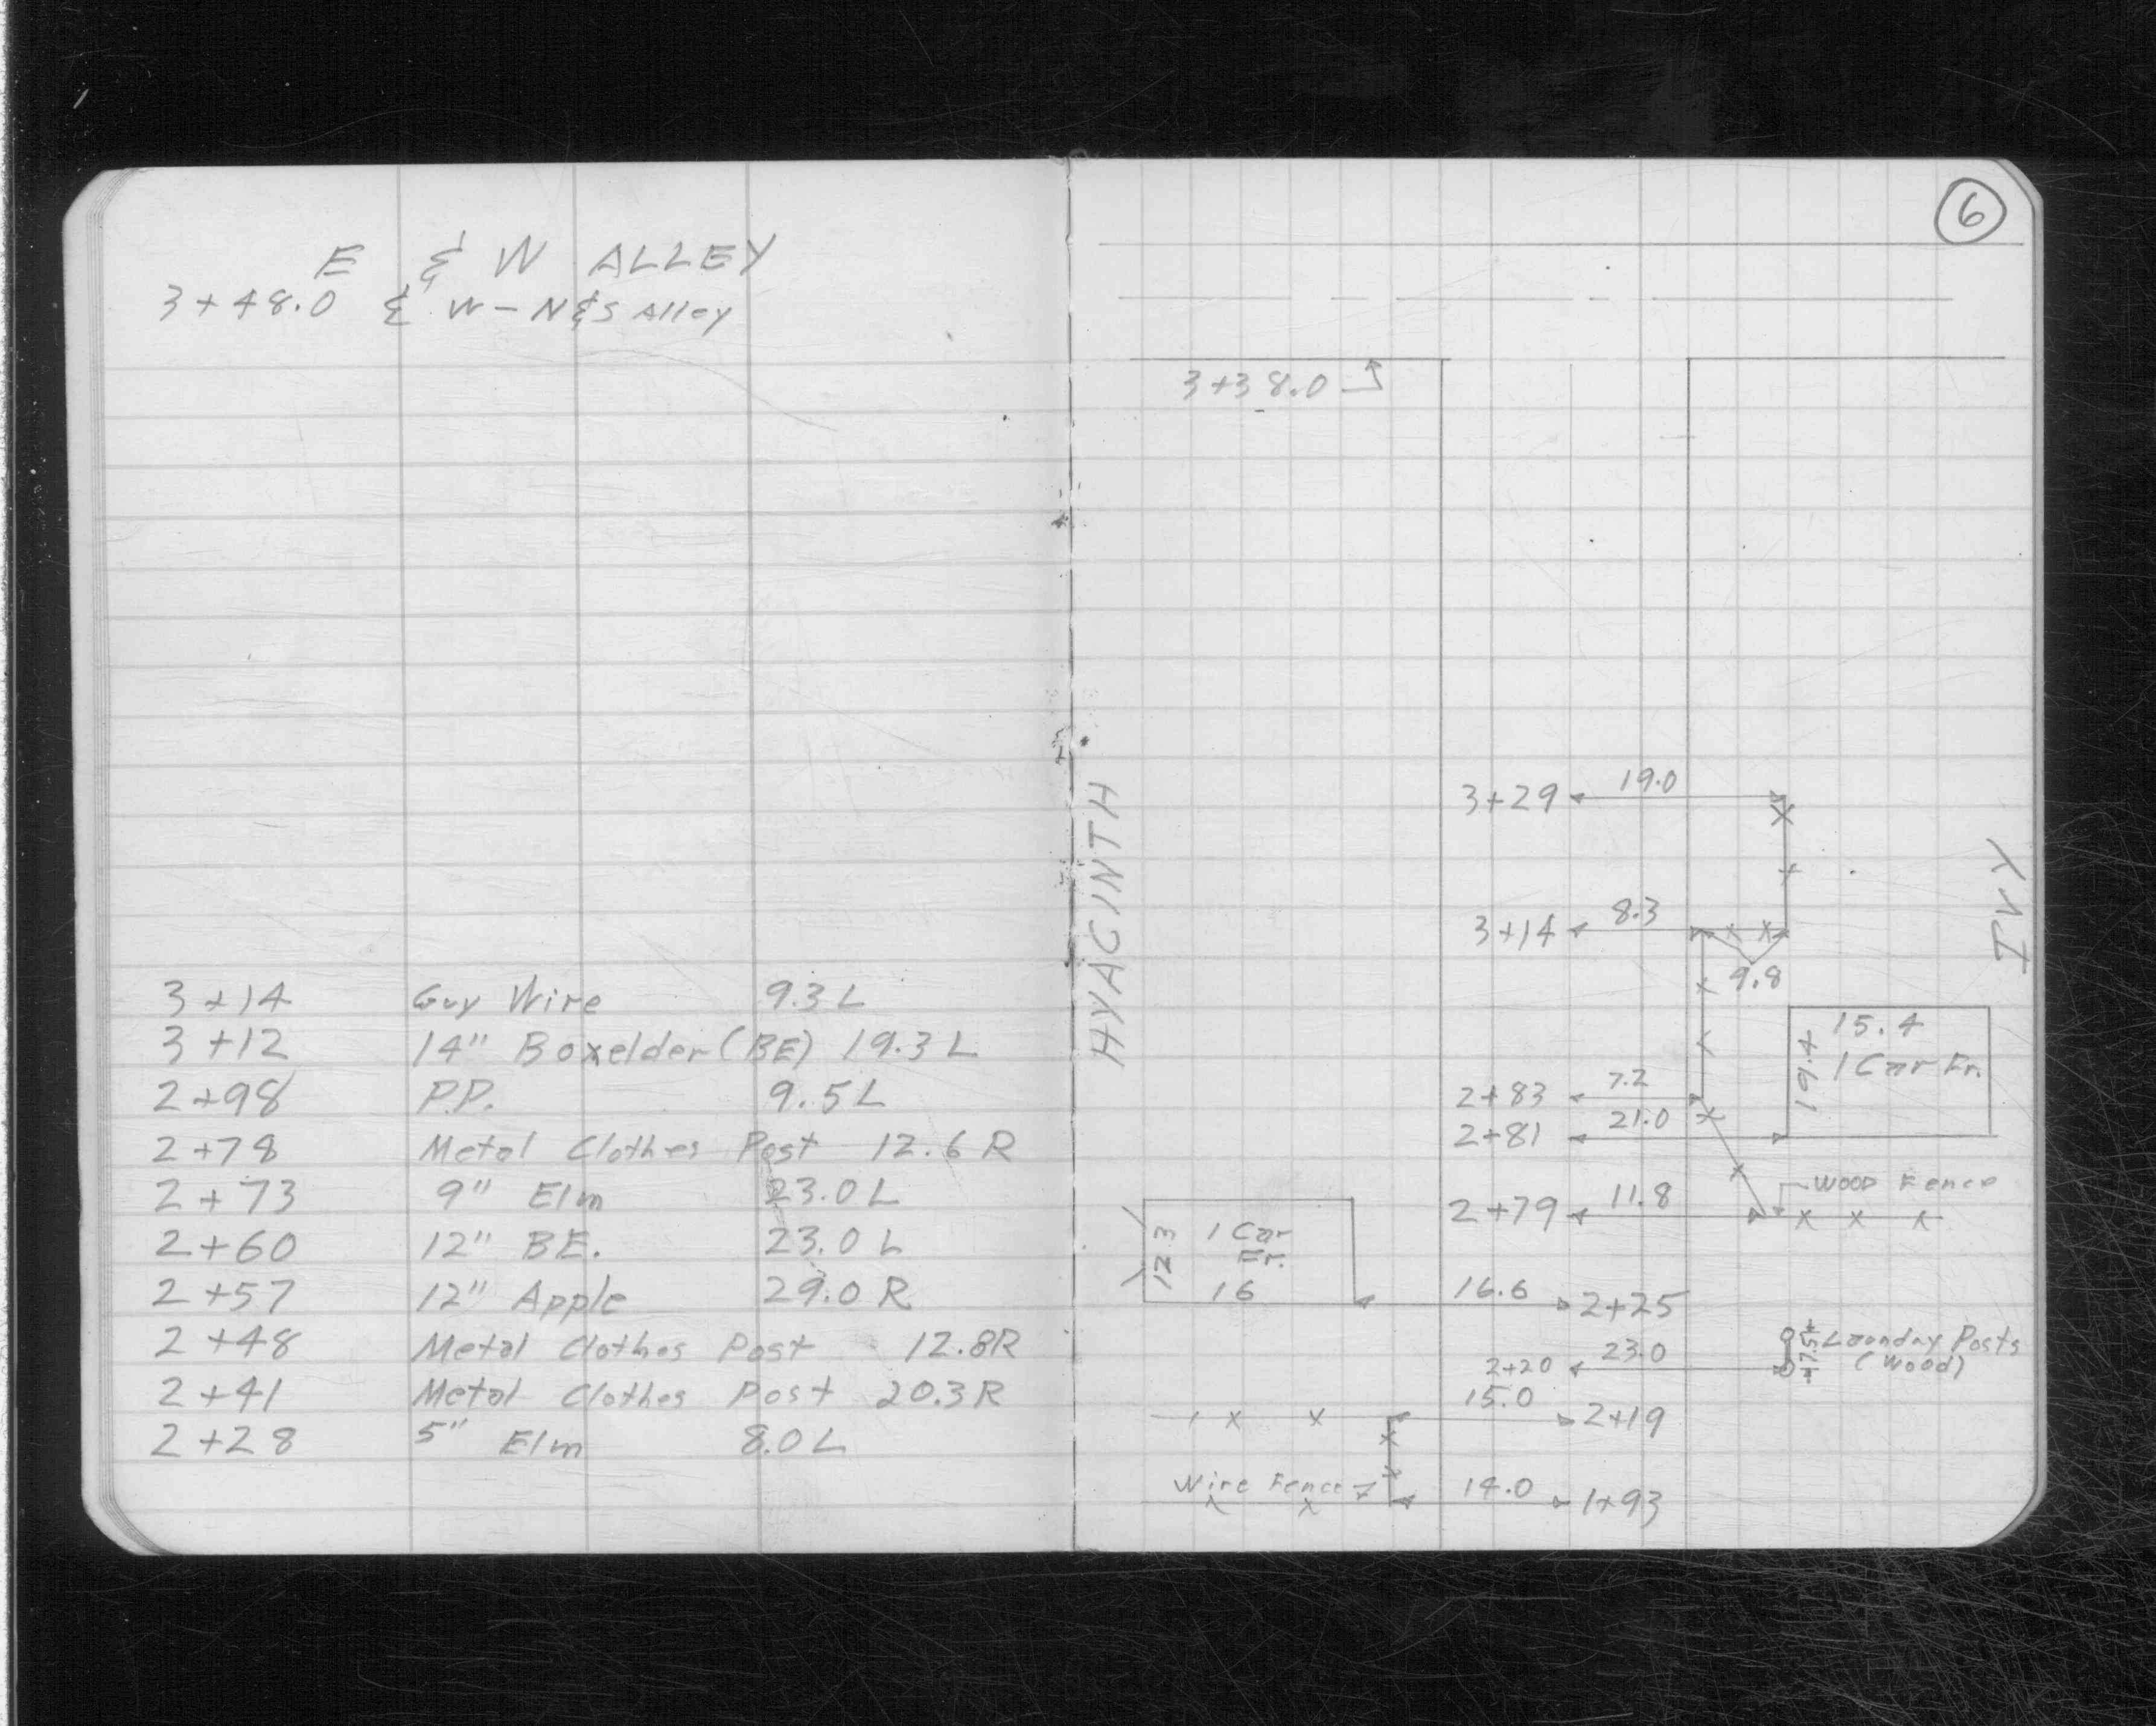 E & W ALLEY
3+48.0 ₵ W-N&S Alley
3+14 Guy Wire 9.3 L
3+12 14" Boxelder (BE) 19.3 L
2+98 P.P. 9.5 L
2+78 Metal Clothes Post 12.6 R
2+73 9" Elm 23.0 L
2+60 12" BE. 23.0 L
2+57 12" Apple 29.0 R
2+48 Metal Clothes Post 12.8 R
2+41 Metal Clothes Post 20.3 R
2+28 5" Elm 8.0 L
6
3+38.0
HYACINTH
IVY
3+29 19.0
3+14 8.3
9.8
15.4
19.4 1 Car Fr.
2+83 7.2
2+81 21.0
Wood Fence
2+79 11.8
12.3 1 Car
Fr.
16
16.6 2+25
2+20 23.0
7.5± Laundry Posts
(Wood)
15.0 2+19
Wire Fence
14.0 1+93